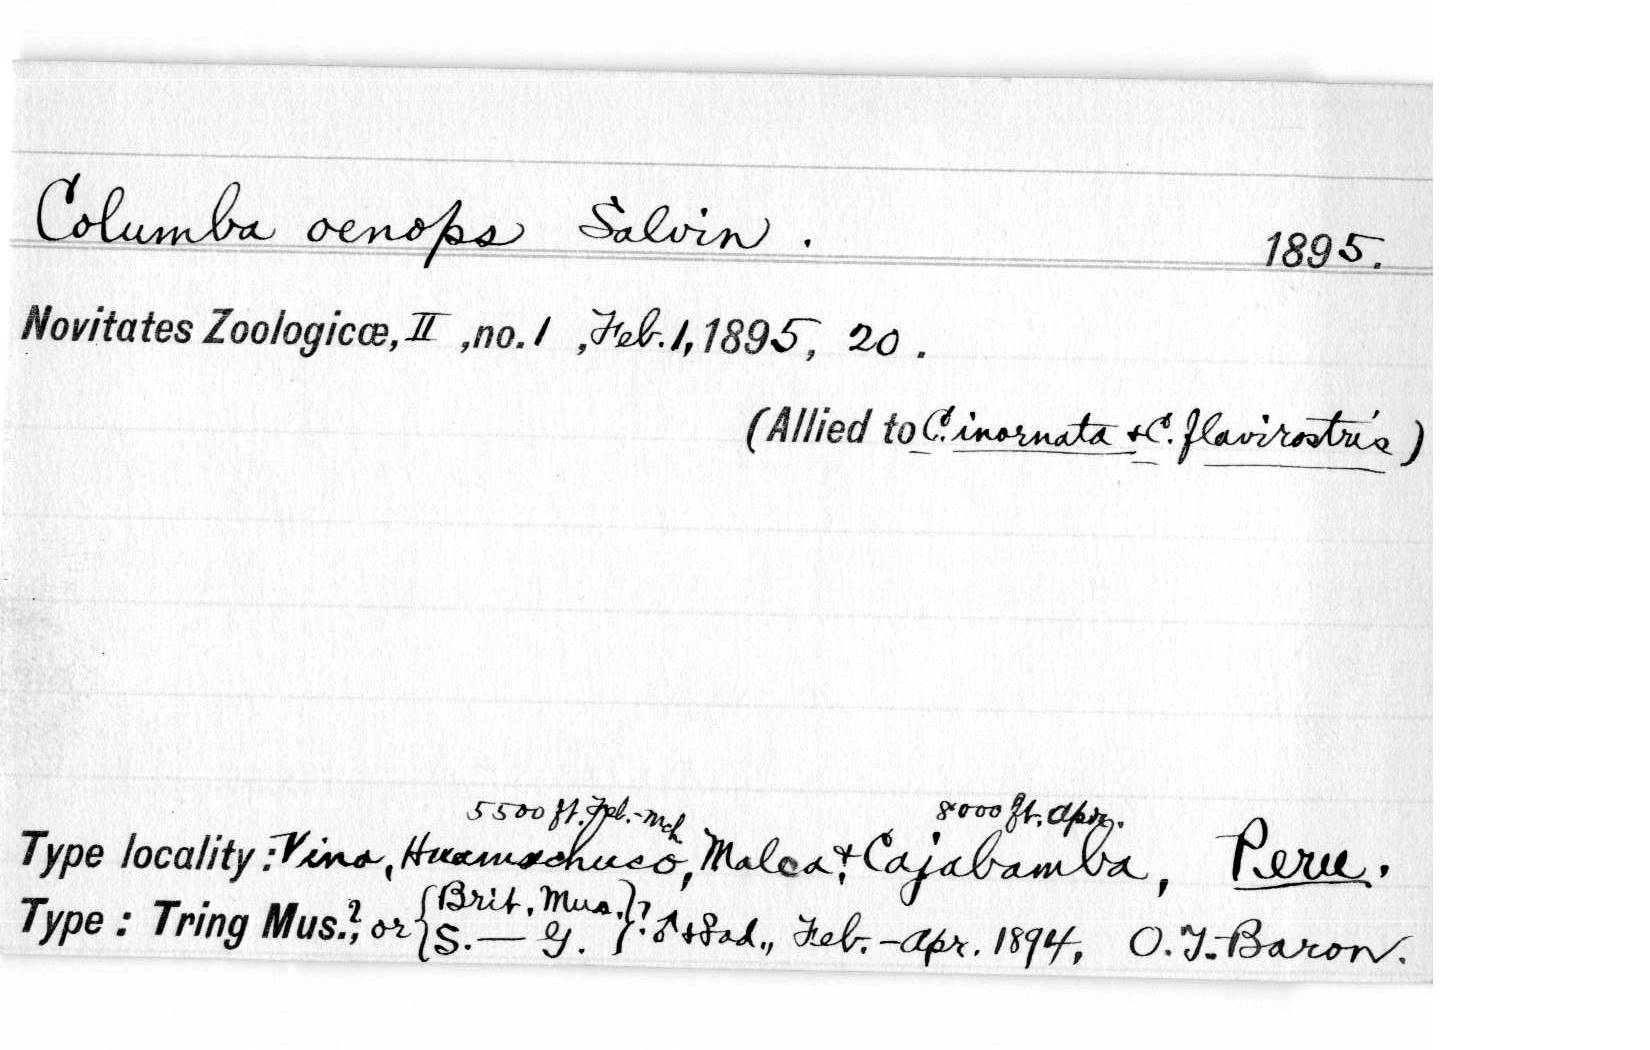 Columba oenops Salvin. 1895.
Novitates Zoologicæ, II, no. 1, Feb. 1, 1895, 20.
(Allied to C. inornata + C. flavirostris)
5500 ft. Feb.-Mch 8000 ft. Apr.
Type locality: Vina, Huamachuco, Malca, + Cajabamba, Peru.
Type: Tring Mus.?, or {Brit. Mus. S.—G.}? ♂ + ♀ ad., Feb.-Apr. 1894, O. T. Baron.